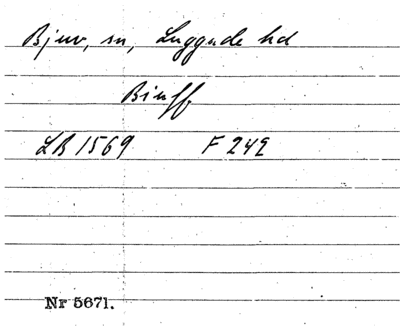 Bjuv, sn, Luggude hd
Biuff
LB 1569 F 242
Nr 5671.